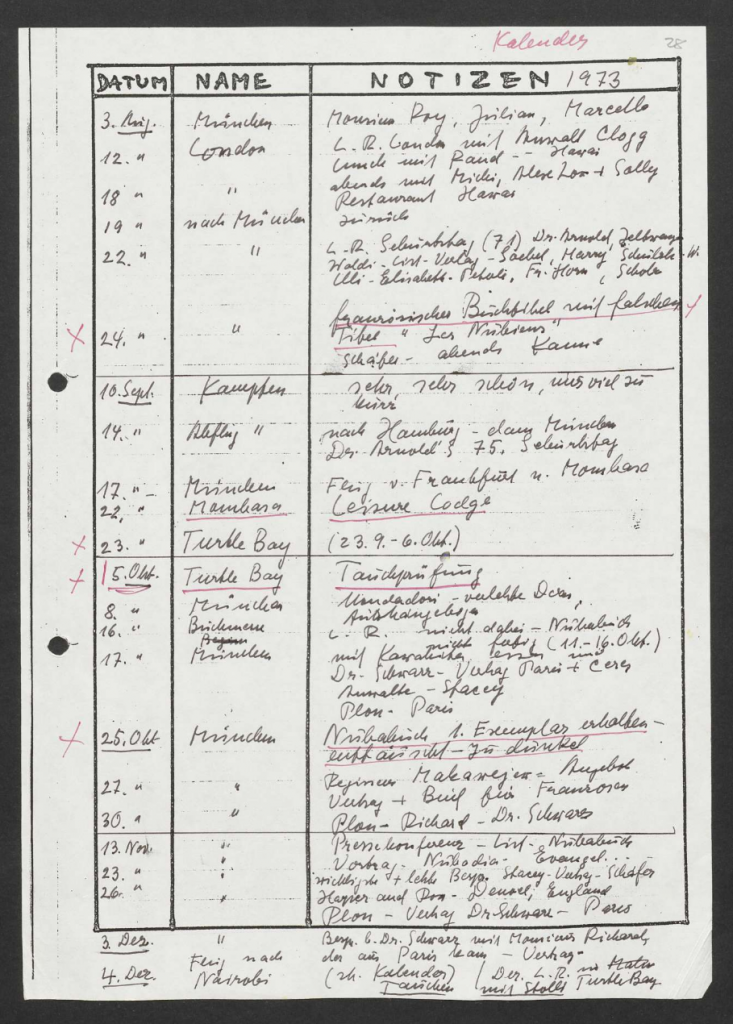 Kalender
28
DATUM NAME NOTIZEN 1973
3. Aug. München Monsieur Roy, Julian, Marcello
12. " London L. R. London mit Anwalt Clogg
Lunch mit Rand -- Hawai
abends mit Michi, + Sally
18 " " Restaurant Hawai
19 " nach München zurück
22. " " L. R. Geburtstag (71) Dr. Arnold,
Waldi - List-Verlag - Harry,
Ulli - Elisabeth - Fr. Horn, Scholz
französisches Buchtitel mit falschem
24. " " Titel " Les Nubiens"
Schäfer - abends
10. Sept. Kampen sehr, sehr schön, nur viel zu
kurz
14. " Abflug " nach Hamburg - dann München
Dr. Arnold's 75. Geburtstag
17. " - München Flug v. Frankfurt n. Mombasa
22. " Mombasa Leisure Lodge
23. " Turtle Bay (23.9. - 6. Okt.)
5. Okt. Turtle Bay Tauchprüfung
8. " München Mondadori - verletzte
16. " Buchmesse L. R. nicht dabei - Nubabuch
nicht fertig (11. - 16. Okt.)
17. " München mit essen
Dr. Schwarz - Vertrag Paris +
Anwälte - Stacey
Plon - Paris
25. Okt München Nubabuch 1. Exemplar erhalten -
enttäuscht - zu dunkel
27. " " Regisseur Makawejew = Angebot
Vertrag + für Franzosen
30. " " Plon - Richard - Dr. Schwarz
13. Nov. " Pressekonferenz - List - Nubabuch
" Vortrag - Nubadia - Evangel...
23. " " wichtigste + letzte Bespr. Stacey - Vertrag - Schäfer
26. " " Harper and Row - Denoel, England
Plon - Vertrag Dr. Schwarz - Paris
3. Dez. " Bespr. b. Dr. Schwarz mit Monsieur Richard,
der aus Paris kam - Vertrag -
4. Dez. Flug nach Nairobi (sh. Kalender) Dez. L. R.
Tauchen mit Stolls Turtle Bay